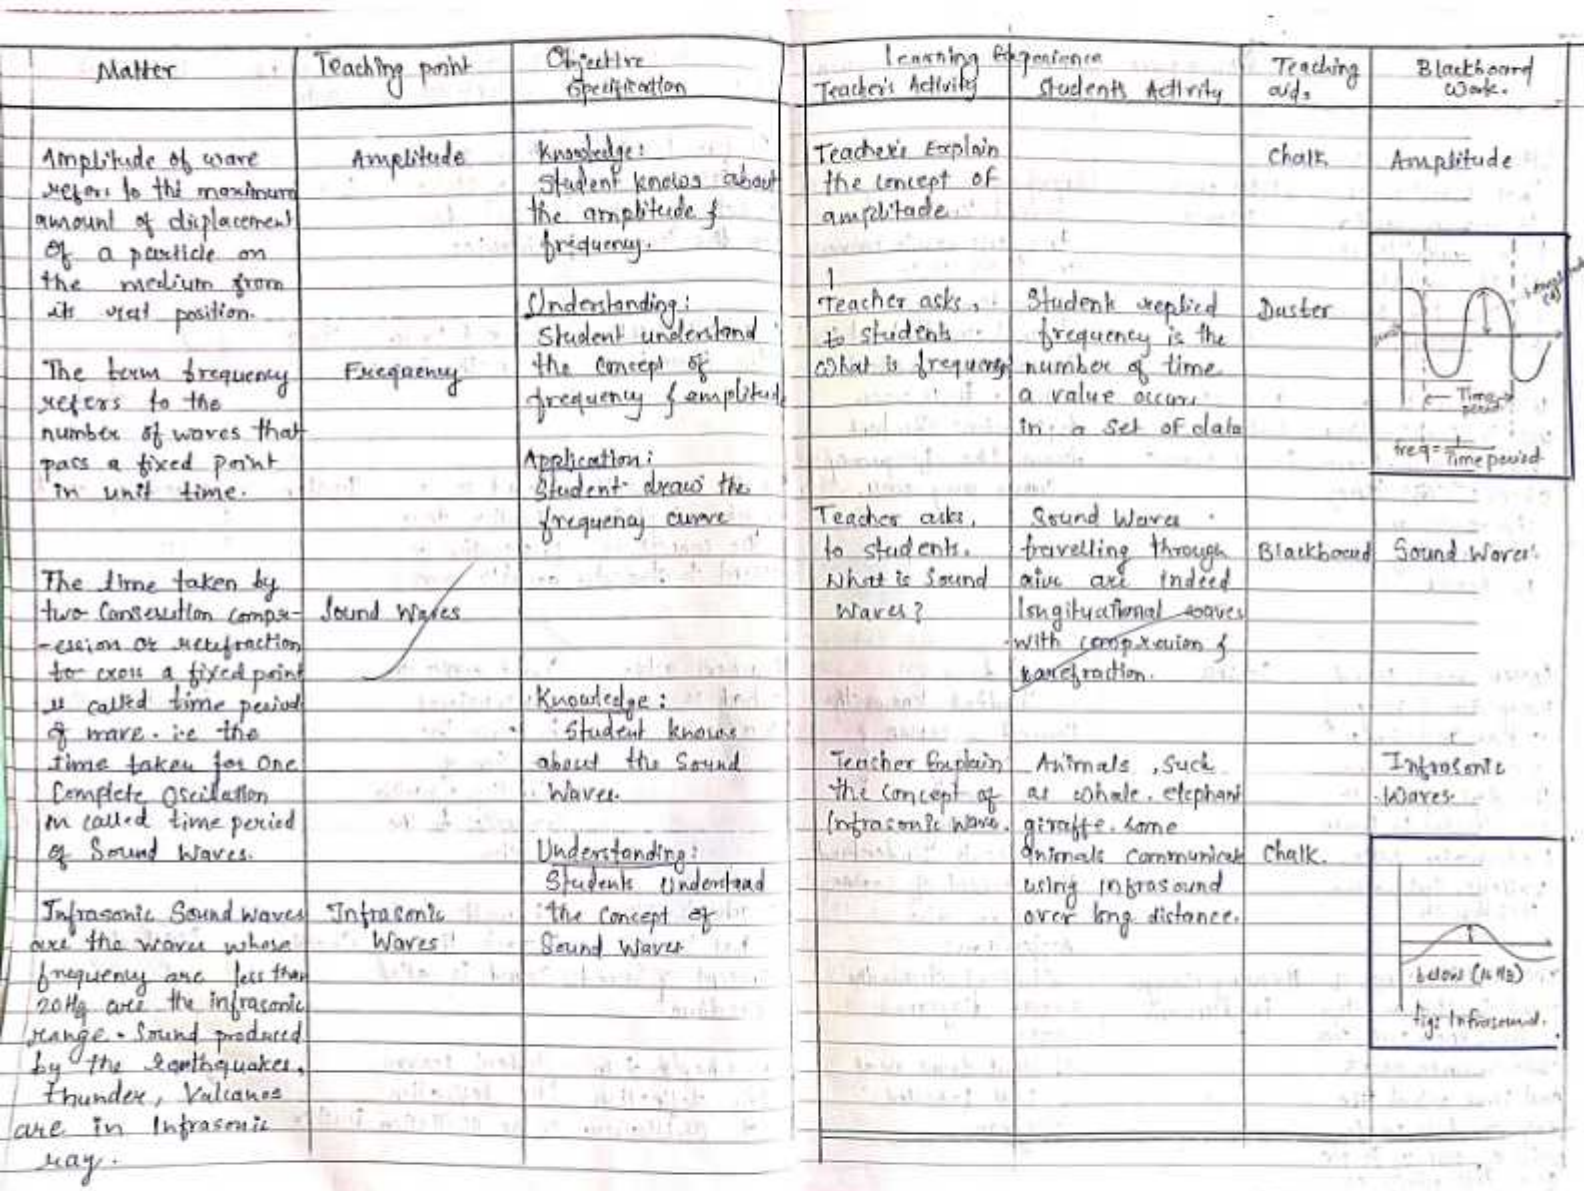 Matter
Teaching point
Objective
Specification
Learning Experience
Teacher's Activity
Students Activity
Teaching
aids
Blackboard
Work.
Amplitude of wave
refers to the maximum
amount of displacement
of a particle on
the medium from
its rest position.
The term frequency
refers to the
number of waves that
pass a fixed point
in unit time.
The time taken by
two Consecution compr-
-ession or rerefraction
to cross a fixed point
is called time period
of wave. i.e the
time taken for One
Complete Oscilation
in called time period
of Sound Waves.
Infrasonic Sound Waves
are the waves whose
frequency are less than
20Hz are the infrasonic
range. Sound produced
by the Earthquakes,
thunder, Valcanos
are in Infrasonic
ray.
Amplitude
Frequency
Sound Waves
Infrasonic
Waves
Knowledge:
Student knows about
the amplitude &
frequency.
Understanding:
Student understand
the concept of
frequency & amplitude
Application:
Student draw the
frequency curve
Knowledge:
Student knows
about the Sound
Waves.
Understanding:
Students Understand
the Concept of
Sound Waves
Teacher's Explain
the concept of
amplitude.
Teacher asks,
to students
What is frequency
Teacher asks,
to students.
What is Sound
Waves?
Teacher Explain
the Concept of
Infrasonic Wave.
Student replied
frequency is the
number of time
a value occurs
in a set of data
Sound Waves
travelling through
are indeed
longituational waves
with compression &
rarefraction.
Animals, Such
as whale, elephant
giraffe. Some
animals communicat
using infrasound
over long distance.
Chalk
Duster
Blackboard
Chalk.
Amplitude
Time
period
freq = 1
Time period
Sound Waves
Infrasonic
Waves
below (16 Hz)
fig: Infrasound.